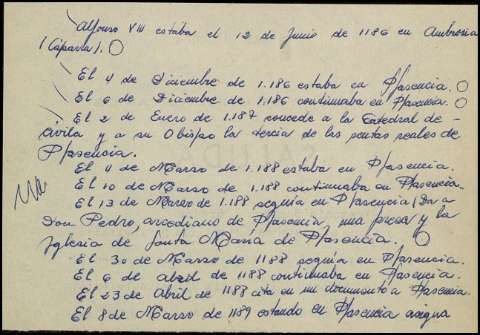 Alfonso VIII estaba el 12 de Junio de 1186 en Ambrosia
(Cáparra).
El 4 de Diciembre de 1.186 estaba en Plasencia.
El 6 de Diciembre de 1.186 continuaba en Plasencia.
El 2 de Enero de 1.187 concede a la Catedral de
Avila y a su Obispo la tercia de las rentas reales de
Plasencia.
El 4 de Marzo de 1.188 estaba en Plasencia.
El 10 de Marzo de 1.188 continuaba en Plasencia.
El 13 de Marzo de 1.188 seguia en Plasencia (Da a
Don Pedro, arcediano de Plasencia, una presa y la
Iglesia de Santa Maria de Plasencia.
El 30 de Marzo de 1188 seguia en Plasencia.
El 6 de Abril de 1188 continuaba en Plasencia.
El 23 de Abril de 1188 cita en un documento a Plasencia.
El 8 de Marzo de 1189 estando en Plasencia asegura